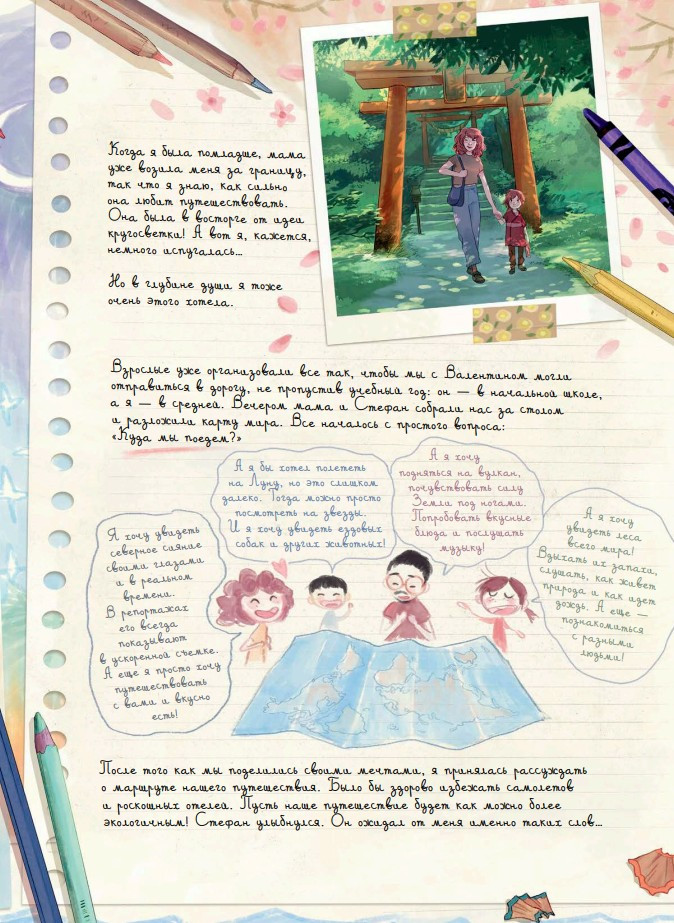 Когда я была помладше, мама
уже возила меня за границу,
так что я знаю, как сильно
она любит путешествовать.
Она была в восторге от идеи
кругосветки! А вот я, кажется,
немного испугалась...
Но в глубине души я тоже
очень этого хотела.
Взрослые уже организовали все так, чтобы мы с Валентином могли
отправиться в дорогу, не пропустив учебный год: он — в начальной школе,
а я — в средней. Вечером мама и Стефан собрали нас за столом
и разложили карту мира. Все началось с простого вопроса:
«Куда мы поедем?»
Я хочу увидеть
северное сияние
своими глазами
и в реальном
времени.
В репортажах
его всегда
показывают
в ускоренной съемке.
А еще я просто хочу
путешествовать
с вами и вкусно
есть!
А я бы хотел полететь
на Луну, но это слишком
далеко. Тогда можно просто
посмотреть на звезды.
И я хочу увидеть ездовых
собак и других животных!
А я хочу
подняться на вулкан,
почувствовать силу
Земли под ногами.
Попробовать вкусные
блюда и послушать
музыку!
А я хочу
увидеть леса
всего мира!
Вдыхать их запахи,
слушать, как живет
природа и как идет
дождь. А еще —
познакомиться
с разными
людьми!
После того как мы поделились своими мечтами, я принялась рассуждать
о маршруте нашего путешествия. Было бы здорово избежать самолетов
и роскошных отелей. Пусть наше путешествие будет как можно более
экологичным! Стефан улыбнулся. Он ожидал от меня именно таких слов...